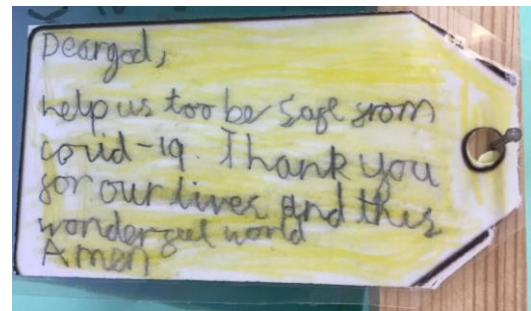 Dear god,
help us too be safe from
covid-19. Thank you
for our lives and this
wonderful world
Amen